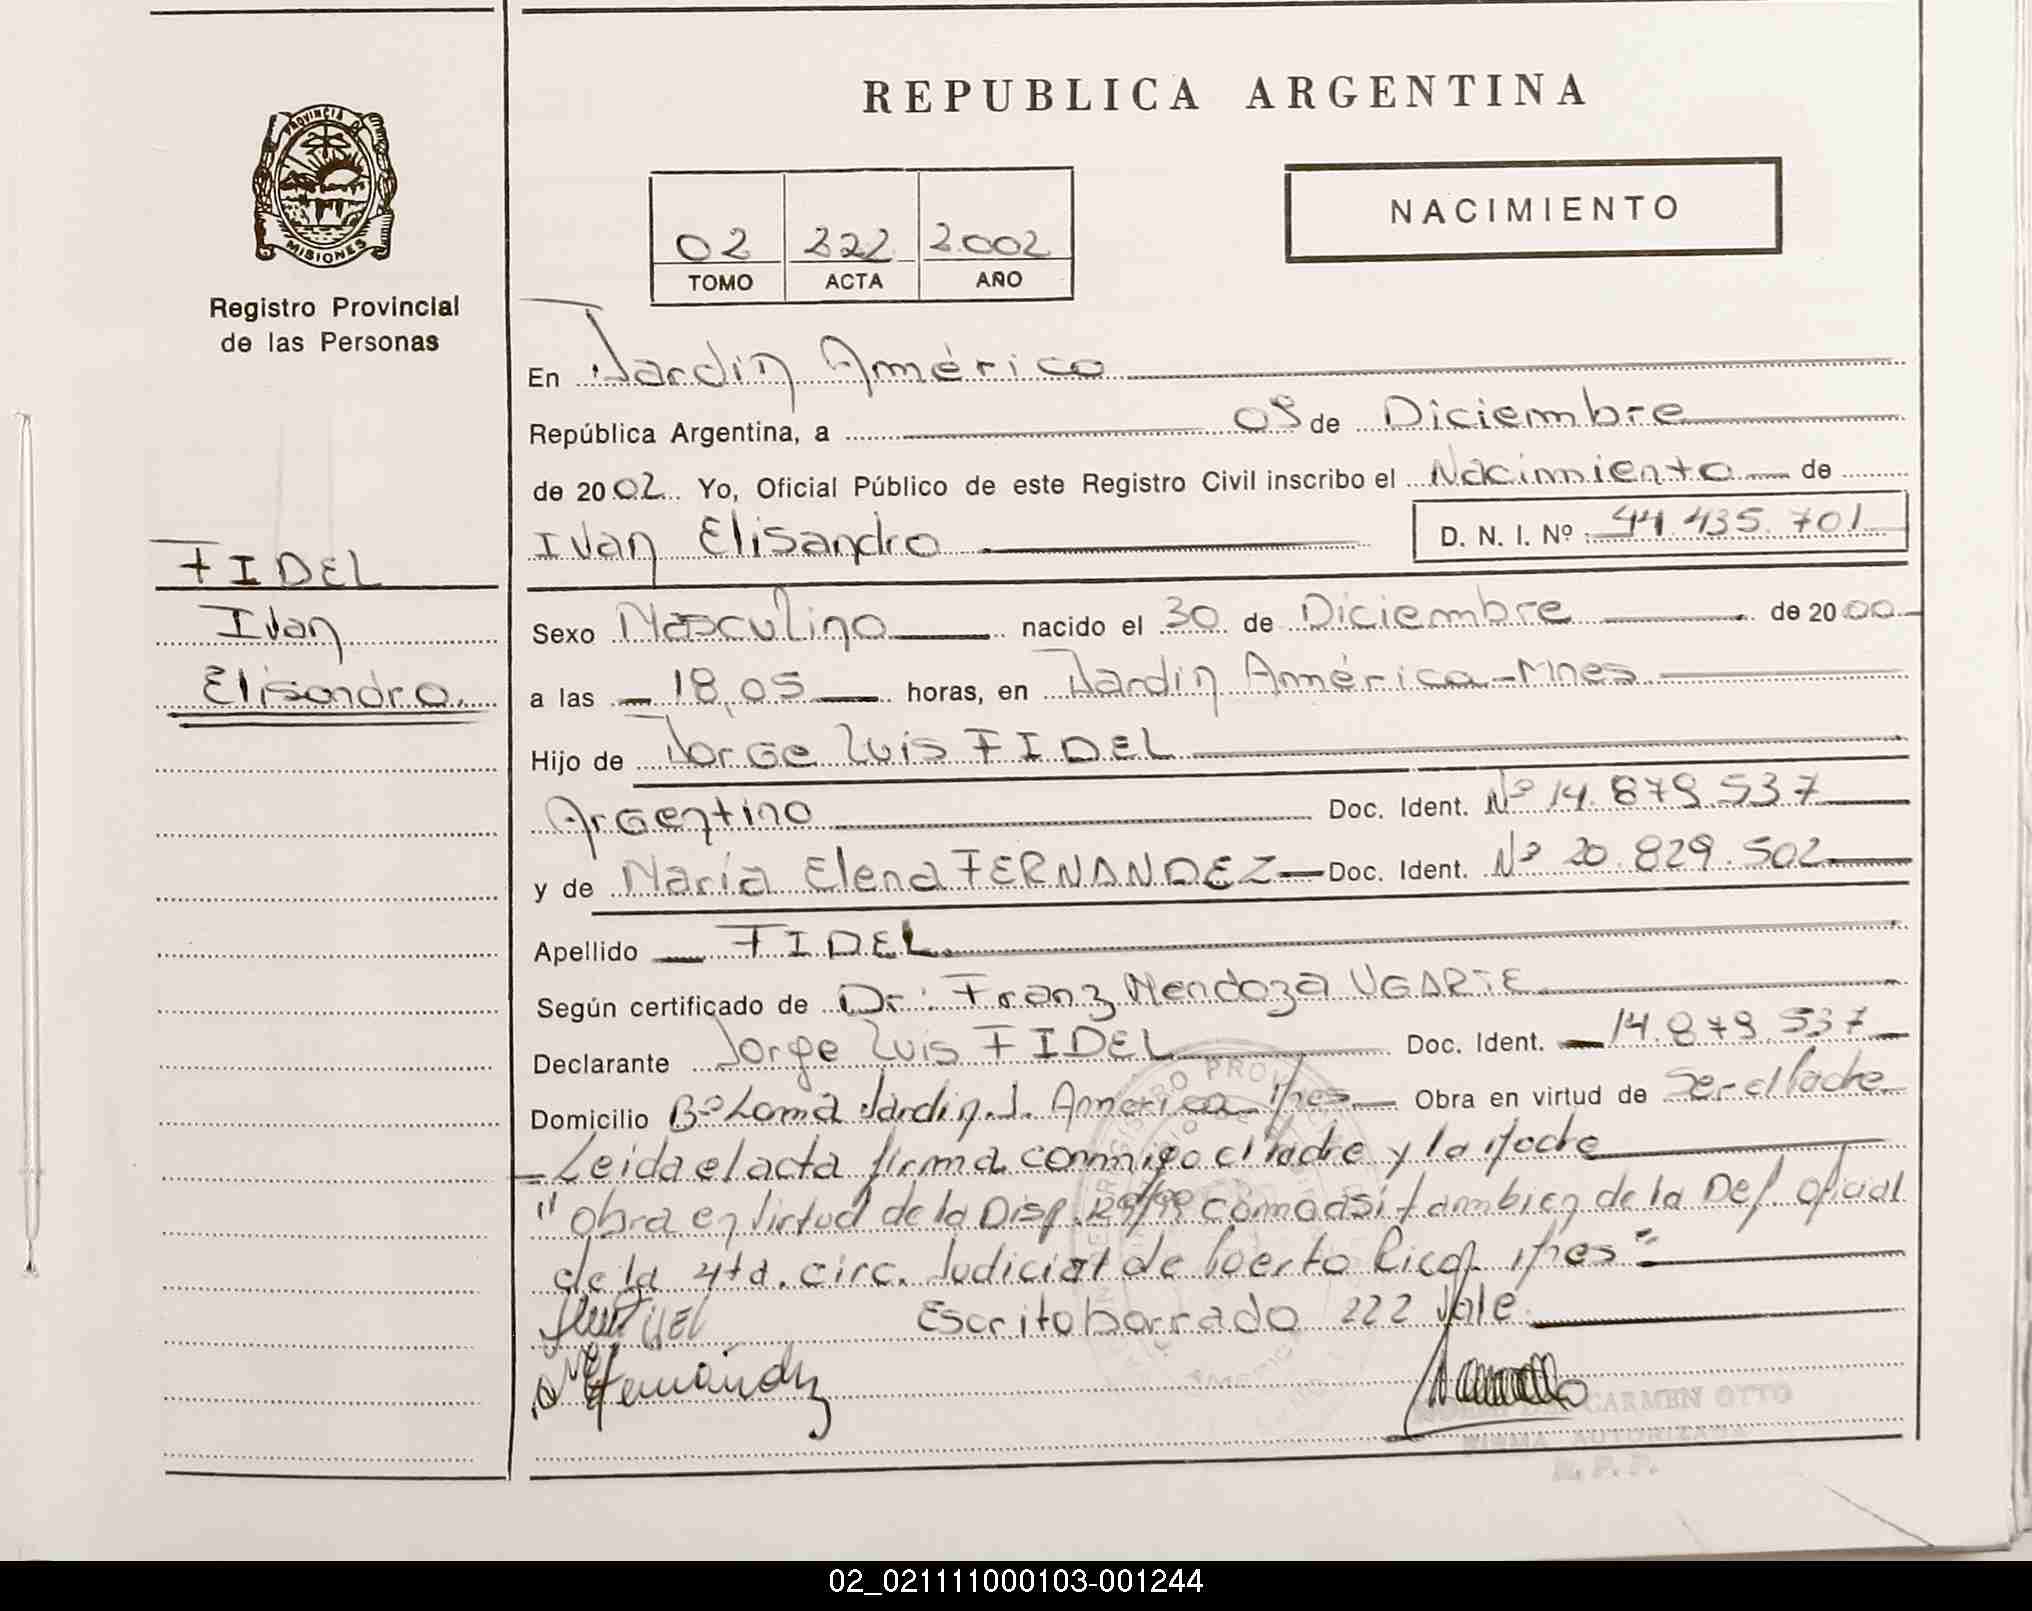 REPUBLICA ARGENTINA
PROVINCIA DE
MISIONES
Registro Provincial
de las Personas
02 222 2.002
TOMO ACTA AÑO
NACIMIENTO
En Jardin América
República Argentina, a 09 de Diciembre
de 2002 Yo, Oficial Público de este Registro Civil inscribo el Nacimiento de
Ivan Elisandro D. N. I. Nº : 44.435.701
FIDEL
Ivan
Elisandro.
Sexo Masculino nacido el 30 de Diciembre de 2000
a las 18,05 horas, en Jardin América - Mnes
Hijo de Jorge Luis FIDEL
Argentino Doc. Ident. Nº 14.879.537
y de María Elena FERNANDEZ Doc. Ident. Nº 20.829.502
Apellido FIDEL
Según certificado de Dr: Franz Mendoza UGARTE
Declarante Jorge Luis FIDEL Doc. Ident. 14.879.537
Domicilio Bº Loma Jardin. J. America Mnes. Obra en virtud de Ser el Padre
Leida el acta firma conmigo el Padre y la Madre
"Obra en virtud de la Disp. 129/99 como asi tambien de la Def. oficial
de la 4ta. circ. Judicial de Puerto Rico Mnes"
Escrito borrado 222 Vale.
Fernández
CARMEN OTTO
FIRMA AUTORIZADA
R. P. P.
02_021111000103-001244